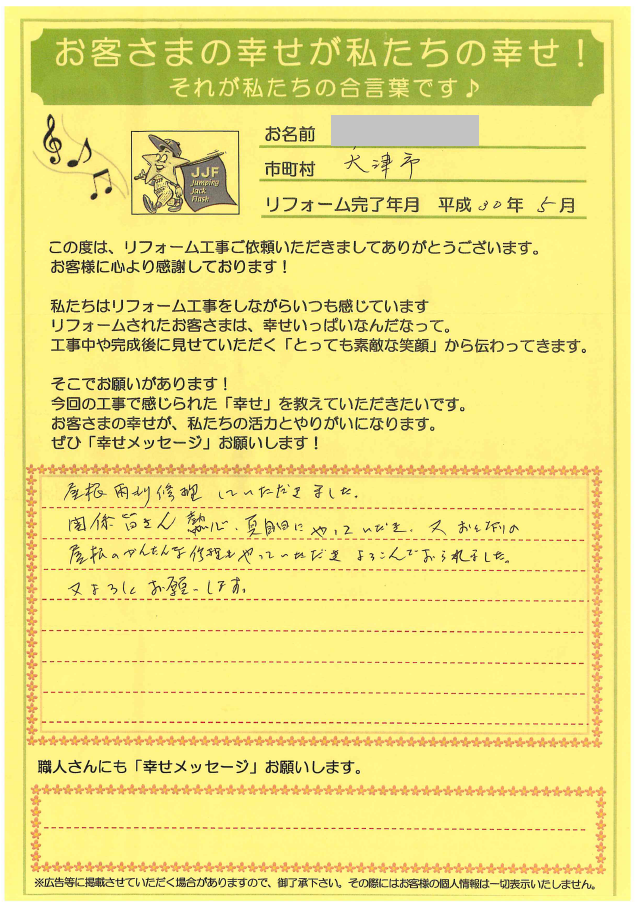 お客さまの幸せが私たちの幸せ！
それが私たちの合言葉です♪
お名前
市町村 大津市
リフォーム完了年月 平成30年5月
JJF
Jumping
Jack
Flash
この度は、リフォーム工事ご依頼いただきましてありがとうございます。
お客様に心より感謝しております！
私たちはリフォーム工事をしながらいつも感じています
リフォームされたお客さまは、幸せいっぱいなんだなって。
工事中や完成後に見せていただく「とっても素敵な笑顔」から伝わってきます。
そこでお願いがあります！
今回の工事で感じられた「幸せ」を教えていただきたいです。
お客さまの幸せが、私たちの活力とやりがいになります。
ぜひ「幸せメッセージ」お願いします！
屋根雨利修理していただきました。
関係皆さん熱心、真面目にやっていだき、又おとなりの
屋根のかんたんな修理もやっていただきよろこんでおられました。
又よろしくお願いします。
職人さんにも「幸せメッセージ」お願いします。
※広告等に掲載させていただく場合がありますので、御了承下さい。その際にはお客様の個人情報は一切表示いたしません。